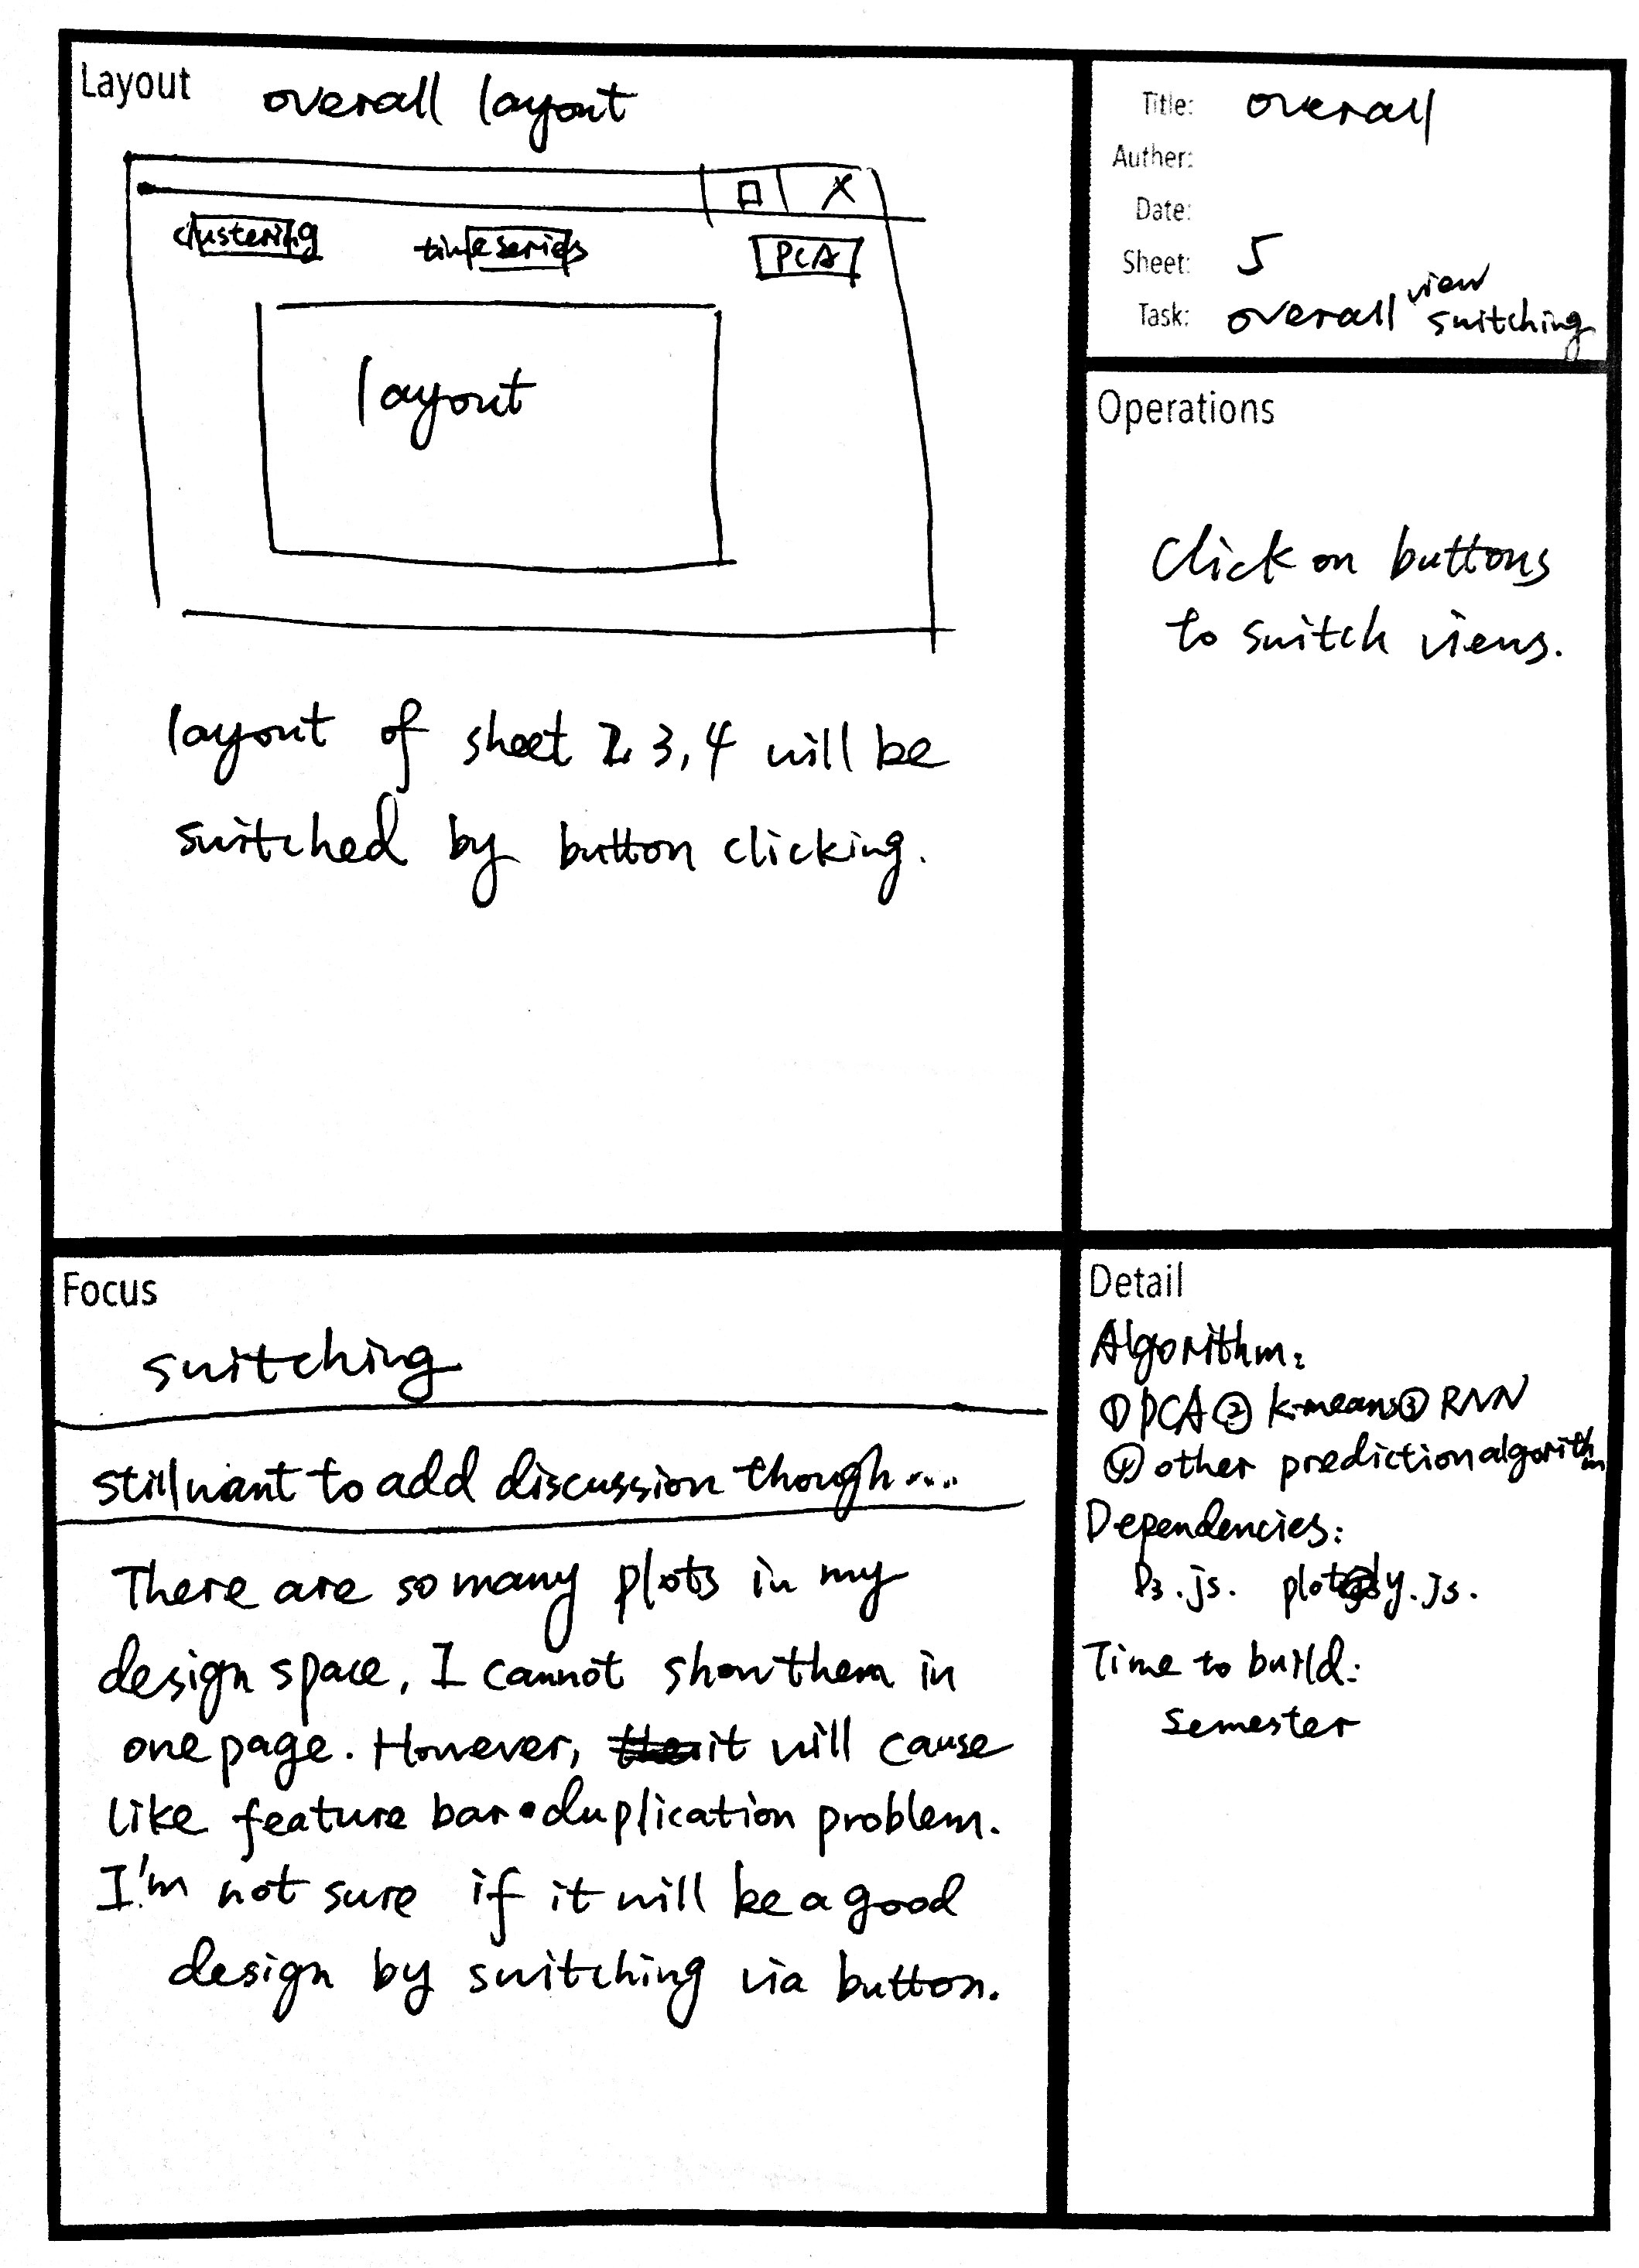 Layout
overall layout
clustering
time series
PCA
layout
layout of sheet 2, 3, 4 will be
switched by button clicking.
Title: overall
Auther:
Date:
Sheet: 5
Task: overall view switching
Operations
Click on buttons
to switch views.
Focus
switching
still want to add discussion though....
There are so many plots in my
design space, I cannot show them in
one page. However, it will cause
like feature bar duplication problem.
I'm not sure if it will be a good
design by switching via button.
Detail
Algorithm:
① PCA ② k-means ③ RNN
④ other prediction algorithm
Dependencies:
D3.js. plotly.js.
Time to build:
semester